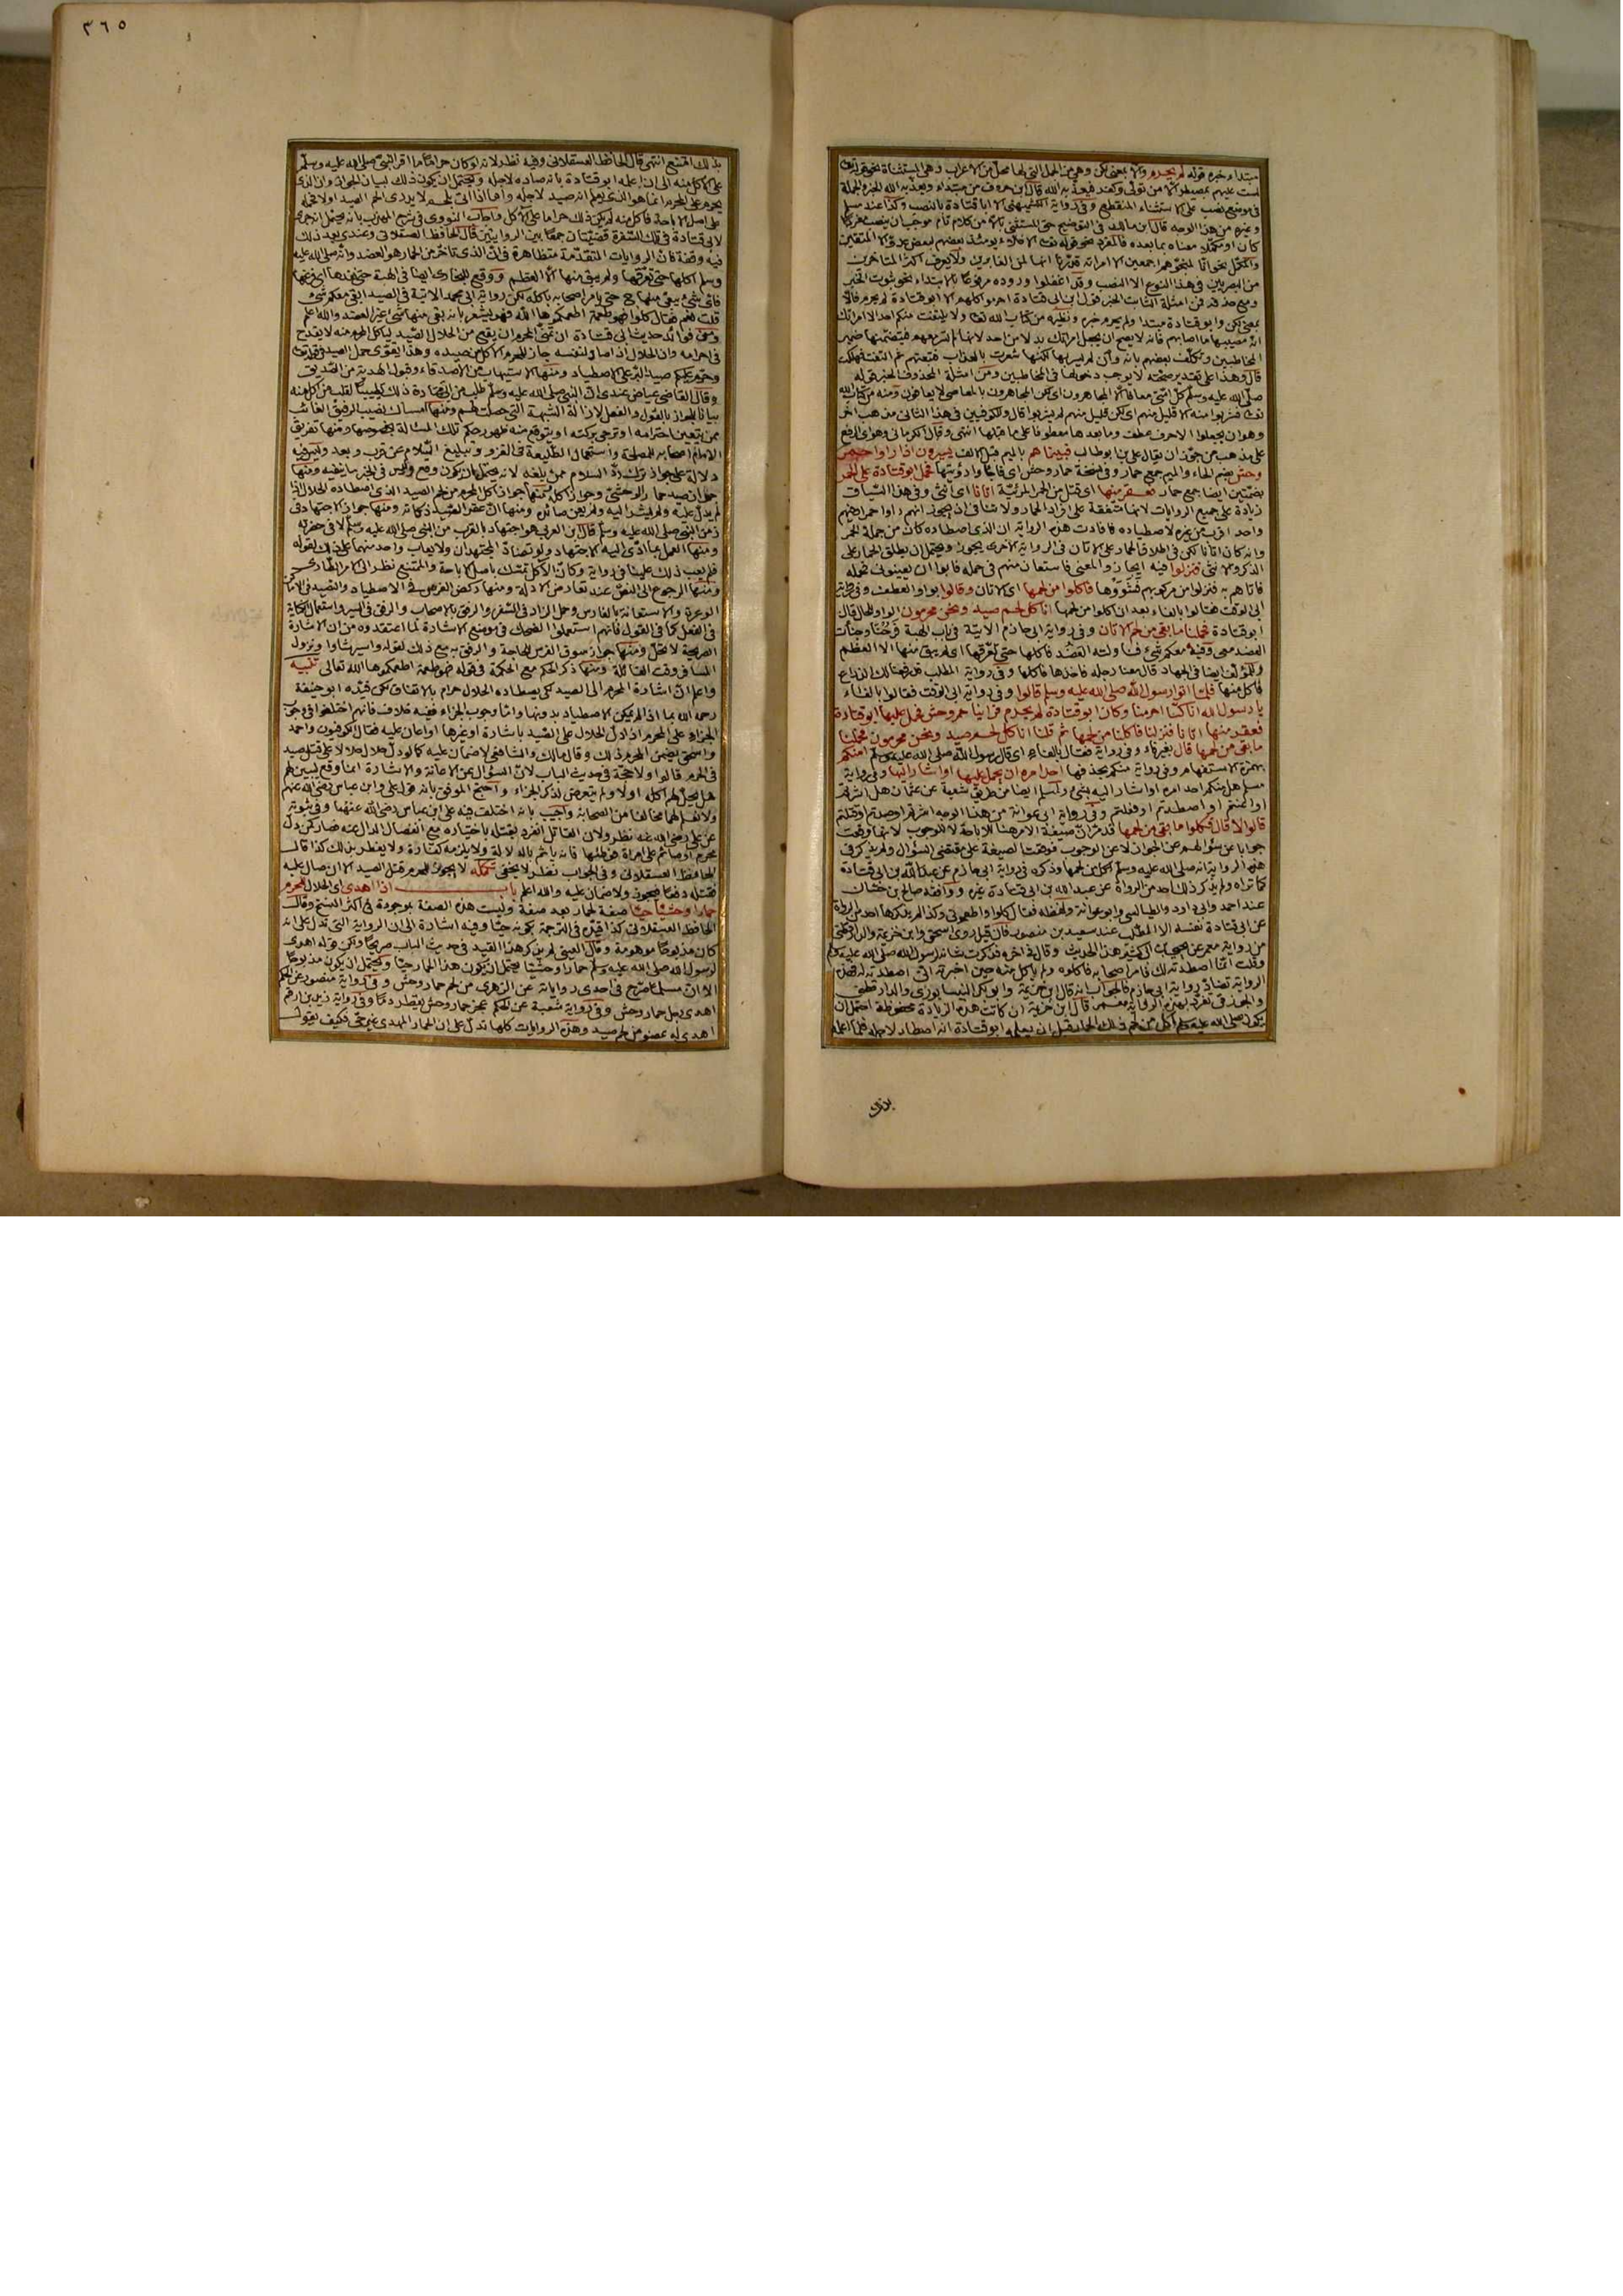 ٣٦٥
مبتدا وخبره قوله لم يحرم والا بمعنى لكن وهي من الجمل التي لها محل من الاعراب وهي المستثناة نحو قوله تعالى
لست عليهم بمصيطر الا من تولى وكفر فيعذبه الله قال ابن خروف من مبتداء ويعذبه الله الخبر والجملة
في موضع نصب على الاستثناء المنقطع وفي رواية الكشميهني الا ابا قتادة بالنصب وكذا عند مسلم
وغيره من هذا الوجه قال ابن مالك في التوضيح حق المستثنى بالا من كلام تام موجب ان ينصب مفردا
كان او مكملا معناه بما بعده فالمفرد نحو قوله تعالى الاخلاء يومئذ بعضهم لبعض عدو الا المتقين
والمكمل نحو انا لمنجوهم اجمعين الا امراته قدرنا انها لمن الغابرين ولا يعرف اكثر المتاخرين
من البصريين في هذا النوع الا النصب وقد اغفلوا وروده مرفوعا بالابتداء نحو ثبوت الخبر
ومع حذفه فمن امثلة الثابت الخبر قول ابن ابي قتادة احرموا كلهم الا ابو قتادة لم يحرم فالا
بمعنى لكن وابو قتادة مبتدا ولم يحرم خبره ونظيره من كتاب الله تعالى ولا يلتفت منكم احد الا امراتك
انه مصيبها ما اصابهم فانه لا يصح ان يجعل امراتك بدلا من احد لانها لم تسر معهم فيتضمنها ضمير
المخاطبين وتكلف بعضهم بانه وان لم يسر بها لكنها شعرت بالعذاب فتبعتهم ثم التفتت فهلكت
قال وهذا على تقدير صحته لا يوجب دخولها في المخاطبين ومن امثلة المحذوف الخبر قوله
صلى الله عليه وسلم كل امتي معافى الا المجاهرون اي لكن المجاهرون بالمعاصي لا يعافون ومنه من كتاب الله
تعالى فشربوا منه الا قليل منهم اي لكن قليل منهم لم يشربوا قال وللكوفيين في هذا الثاني مذهب اخر
وهو ان يجعلوا الا حرف عطف وما بعدها معطوفا على ما قبلها انتهى وقال الكرماني وهو اي الرفع
على مذهب من جوز ان يقال علي بن ابو طالب فبينما هم بالميم قبل الالف يسيرون اذ راوا حمر
وحش بضم الحاء والميم جمع حمار وفي نسخة حمار وحش فحمل ابو قتادة على الحمر
بضمتين ايضا جمع حمار فعقر منها اي قتل من الحمر المرئية اتانا اي انثى وفي هذا السياق
زيادة على جميع الروايات لانها متفقة على افراد الحمار
واحد اقرب من غيره لاصطياده فافادت هذه الرواية ان الذي اصطاده كان من جملة الحمر
وانه كان اتانا لكن في اطلاق الحمار على الاتان في الرواية الاخرى يجوز ويحتمل ان يطلق الحمار على
الذكر والانثى فنزلوا فيه ايجاز والمعنى فاستعان منهم في حمله فابوا ان يعينوني فحمله
فاتاهم به فنزلوا من مركوبهم فشووها فاكلوا من لحمها اي الاتان وقالوا بواو العطف
ابي الوقت فقالوا بالفاء بعد ان اكلوا من لحمها اناكل لحم صيد ونحن محرمون الواو للحال قال
ابو قتادة فحملنا ما بقي من لحم الاتان وفي رواية ابي حازم الاتية في باب الهبة فرحنا وخبأت
العضد معي وفيه معكم شيء فناولته العضد فاكلها حتى تعرقها اي لم يبق منها الا العظم
وللمؤلف ايضا في الجهاد قال معنا رجله فاخذها فاكلها وفي رواية المطلب قد رفعنا لك الذراع
فاكل منها فلما اتوا رسول الله صلى الله عليه وسلم قالوا وفي رواية ابي الوقت فقالوا بالفاء
يا رسول الله انا كنا احرمنا وكان ابو قتادة لم يحرم فراينا حمر وحش فحمل عليها ابو قتادة
فعقر منها اتانا فنزلنا فاكلنا من لحمها ثم قلنا اناكل لحم صيد ونحن محرمون فحملنا
ما بقي من لحمها قال بغير فاء وفي رواية فقال بالفاء اي قال رسول الله صلى الله عليه وسلم امنكم
بهمزة الاستفهام وفي رواية منكم بحذفها احد امره ان يحمل عليها او اشار اليها وفي رواية
مسلم هل منكم احد امره او اشار اليه بشيء ولمسلم ايضا من طريق شعبة عن عثمان هل اشرتم
او اعنتم او اصطدتم وفي رواية ابي عوانة من هذا الوجه اشرتم او صدتم او قتلتم
قالوا لا قال فكلوا ما بقي من لحمها قد مر ان صيغة الامر هنا للاباحة لا للوجوب لانها وقعت
جوابا عن سؤالهم عن الجواز لا عن الوجوب فوقعت الصيغة على مقتضى السؤال ولم يذكر في
هذه الرواية انه صلى الله عليه وسلم اكل من لحمها وذكره في رواية ابي حازم عن عبد الله بن ابي قتادة
كما تراه ولم يذكر ذلك احد من الرواة عن عبد الله بن ابي قتادة غيره ووافقه صالح بن حسان
عند احمد وابي داود الطيالسي وابو عوانة ولفظه فقال كلوا واطعموني وكذا لم يذكرها احد من الرواة
عن ابي قتادة نفسه الا المطلب عند سعيد بن منصور فان قيل روى اسحق وابن خزيمة والدارقطني
من رواية معمر عن يحيى بن ابي كثير هذا الحديث وقال في اخره فذكرت شانه لرسول الله صلى الله عليه وسلم
وقلت انما اصطدته لك فامر اصحابه فاكلوه ولم ياكل منه حين اخبرته اني اصطدته له فهذه
الرواية تضاد رواية ابي حازم فالجواب انه قال ابن خزيمة وابو بكر النيسابوري والدارقطني
والجوزقي تفرد بهذه الرواية معمر قال ابن خزيمة ان كانت هذه الزيادة محفوظة احتمل ان
يكون صلى الله عليه وسلم اكل من لحم ذلك الحمار قبل ان يعلمه ابو قتادة انه اصطاده لاجله فلما اعلمه
بذلك امتنع انتهى قال الحافظ العسقلاني وفيه نظر لانه لو كان حراما ما اقر النبي صلى الله عليه وسلم
على الاكل منه الى ان اعلمه ابو قتادة بانه صاده لاجله ويحتمل ان يكون ذلك لبيان الجواز وان الذي
يحرم على المحرم انما هو الذي يعلم انه صيد لاجله واما اذا اتي بلحم لا يدري الحم الصيد اولا فحمله
على اصل الاباحة فاكل منه لم يكن ذلك حراما على الاكل واجاب النووي في شرح المهذب بانه يحتمل انه جرى
لابي قتادة في تلك السفرة قضيتان جمعا بين الروايتين قال الحافظ العسقلاني وعندي بعد ذلك
فيه وقفة فان الروايات المتقدمة متظاهرة في ان الذي تاخر من الحمار هو العضد وانه صلى الله عليه
وسلم اكلها حتى تعرقها ولم يبق منها الا العظم ووقع للبخاري ايضا في الهبة حتى نفدها اي فرغها
فاي شيء يبقى منها ح حتى يامر اصحابه باكله لكن رواية ابي محمد الاتية في الصيد ابقي معكم شيء
قلت نعم فقال كلوا فهو طعمة اطعمكموها الله فهو يشعر بانه بقي منها شيء غير العضد والله اعلم
ومن فوائد حديث ابي قتادة ان تمني المحرم ان يقع من الحلال الصيد لياكل المحرم منه لا يقدح
في احرامه وان الحلال اذا صاد لنفسه جاز للمحرم الاكل من صيده وهذا يقوي حمل الصيد في قوله تعالى
وحرم عليكم صيد البر على الاصطياد ومنها الاستيهاب من الاصدقاء وقبول الهدية من الصديق
وقال القاضي عياض عندي ان النبي صلى الله عليه وسلم طلب من ابي قتادة ذلك تطييبا لقلب من اكل منه
بيانا للجواز بالقول والفعل لازالة الشبهة التي حصلت لهم ومنها امساك نصيب الرفيق الغائب
ممن يتعين احترامه او ترجى بركته او يتوقع منه ظهور حكم تلك المسالة بخصوصها ومنها تفريق
الامام اصحابه للمصلحة واستعمال الطليعة في الغزو وتبليغ السلام عن قرب وبعد وليس فيه
دلالة على جواز ترك رد السلام ممن بلغه لانه يحتمل ان يكون وقع وليس في الخبر ما ينفيه ومنها
حل ان صيد حمار الوحشي وجواز اكله ومنها جواز اكل المحرم من لحم الصيد الذي اصطاده الحلال اذا
لم يدل عليه ولم يشر اليه ولم يعن صائده ومنها ان عقر الصيد ذكاته ومنها جواز الاجتهاد في
زمن النبي صلى الله عليه وسلم قال ابن العربي هو اجتهاد بالقرب من النبي صلى الله عليه وسلم لا في حضرته
ومنها العمل بما ادى اليه الاجتهاد ولو تضاد المجتهدان ولا يعاب واحد منهما على ذلك لقوله
فلم يعب ذلك علينا في رواية وكان الاكل تمسك باصل الاباحة والممتنع نظر الى الامر الطاري
ومنها الرجوع الى النص عند تعارض الادلة ومنها ركض الفرس في الاصطياد والتصيد في الاماكن
الوعرة والاستعانة بالفارس وحمل الزاد في السفر والرفق بالاصحاب والرفق في السير واستعمال الكناية
في الفعل كما في القول فانهم استعملوا الضحك في موضع الاشارة لما اعتقدوه من ان الاشارة
الصريحة لا تحل ومنها جواز سوق الفرس للحاجة والرفق به مع ذلك لقوله واسير شاوا ونزول
المسافر وقت القائلة ومنها ذكر الحكم مع الحكمة في قوله هو طعمة اطعمكموها الله تعالى تنبيه
واعلم ان اشارة المحرم الى الصيد كي يصطاده الحلال حرام بالاتفاق لكن قيده ابو حنيفة
رحمه الله بما اذا لم يمكن الاصطياد بدونها واما وجوب الجزاء ففيه خلاف فانهم اختلفوا في وجوب
الجزاء على المحرم اذا دل الحلال على الصيد باشارة او غيرها او اعان عليه فقال الكوفيون واحمد
واسحق يضمن المحرم ذلك وقال مالك والشافعي لا ضمان عليه كما لو دل حلال حلالا على قتل صيد
في الحرم قالوا ولا حجة في حديث الباب لان السؤال عن الاعانة والاشارة انما وقع ليبين لهم
هل يحل لهم اكله اولا ولم يتعرض لذكر الجزاء واحتج الموفق بانه قول علي وابن عباس رضي الله عنهم
ولا نعلم لهما مخالفا من الصحابة واجيب بانه اختلف فيه على ابن عباس رضي الله عنهما وفي ثبوته
عن علي رضي الله عنه نظر ولان القاتل انفرد بقتله باختياره مع انفصال الدال عنه فصار كمن دل
محرما او صائما على امراة فوطئها فانه ياثم بالدلالة ولا يلزمه كفارة ولا يفطر بذلك كذا قال
الحافظ العسقلاني وفي الجواب نظر لا يخفى تكملة لا يجوز للمحرم قتل الصيد الا ان صال عليه
فقتله دفعا فيجوز ولا ضمان عليه والله اعلم باب اذا اهدى اي الحلال للمحرم
حمارا وحشيا حيا صفة لحمار بعد صفة وليست هذه الصفة بموجودة في اكثر النسخ وقال
الحافظ العسقلاني كذا قيده في الترجمة بكونه حيا وفيه اشارة الى ان الرواية التي تدل على انه
كان مذبوحا موهومة وقال العيني لم يذكر هذا القيد في حديث الباب صريحا ولكن قوله اهدى
لرسول الله صلى الله عليه وسلم حمارا وحشيا يحتمل ان يكون هذا الحمار حيا ويحتمل ان يكون مذبوحا
الا ان مسلما صرح في احدى رواياته عن الزهري من لحم حمار وحش وفي رواية منصور عن الحكم
اهدى رجل حمار وحش وفي رواية شعبة عن الحكم عجز حمار وحش يقطر دما وفي رواية زيد بن ارقم
اهدي له عضو من لحم صيد وهذه الروايات كلها تدل على ان الحمار المهدى غير حي فكيف يقول